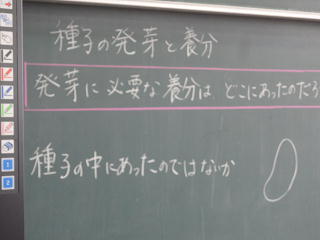 種子の発芽と養分
発芽に必要な養分は どこにあったのだろ
種子の中にあったのではないか
1
2